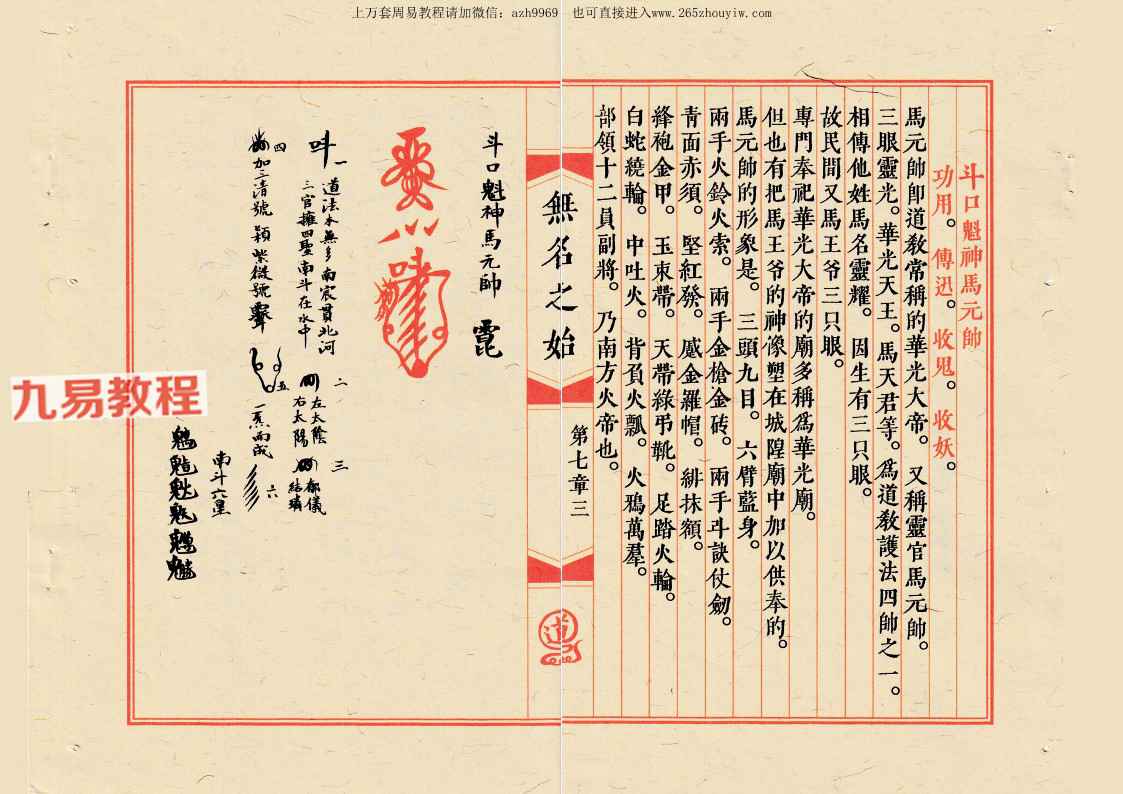 上万套周易教程请加微信：azh9969 也可直接进入www.265zhouyiw.com
斗口魁神馬元帥
功用。傳迅。收鬼。收妖。
馬元帥即道教常稱的華光大帝。又稱靈官馬元帥。
三眼靈光。華光天王。馬天君等。爲道教護法四帥之一。
相傳他姓馬名靈耀。因生有三只眼。
故民間又馬王爺三只眼。
專門奉祀華光大帝的廟多稱爲華光廟。
但也有把馬王爺的神像塑在城隍廟中加以供奉的。
馬元帥的形象是。三頭九目。六臂藍身。
兩手火鈴火索。兩手金槍金磚。兩手斗訣仗劒。
青面赤须。堅紅發。感金羅帽。緋抹額。
絳袍金甲。玉束帶。天帶綠弔靴。足踏火輪。
白蛇繞輪。中吐火。背負火瓢。火鴉萬羣。
部領十二員副將。乃南方火帝也。
無名之始
第七章三
道
斗口魁神馬元帥
一
道法本無多南宸貫北河
三官擁四聖南斗在水中
二
左太陰
右太陽
三
都儀
結璘
四
加三清號
紫微號
五
一炁而成
六
南斗六星
九易教程